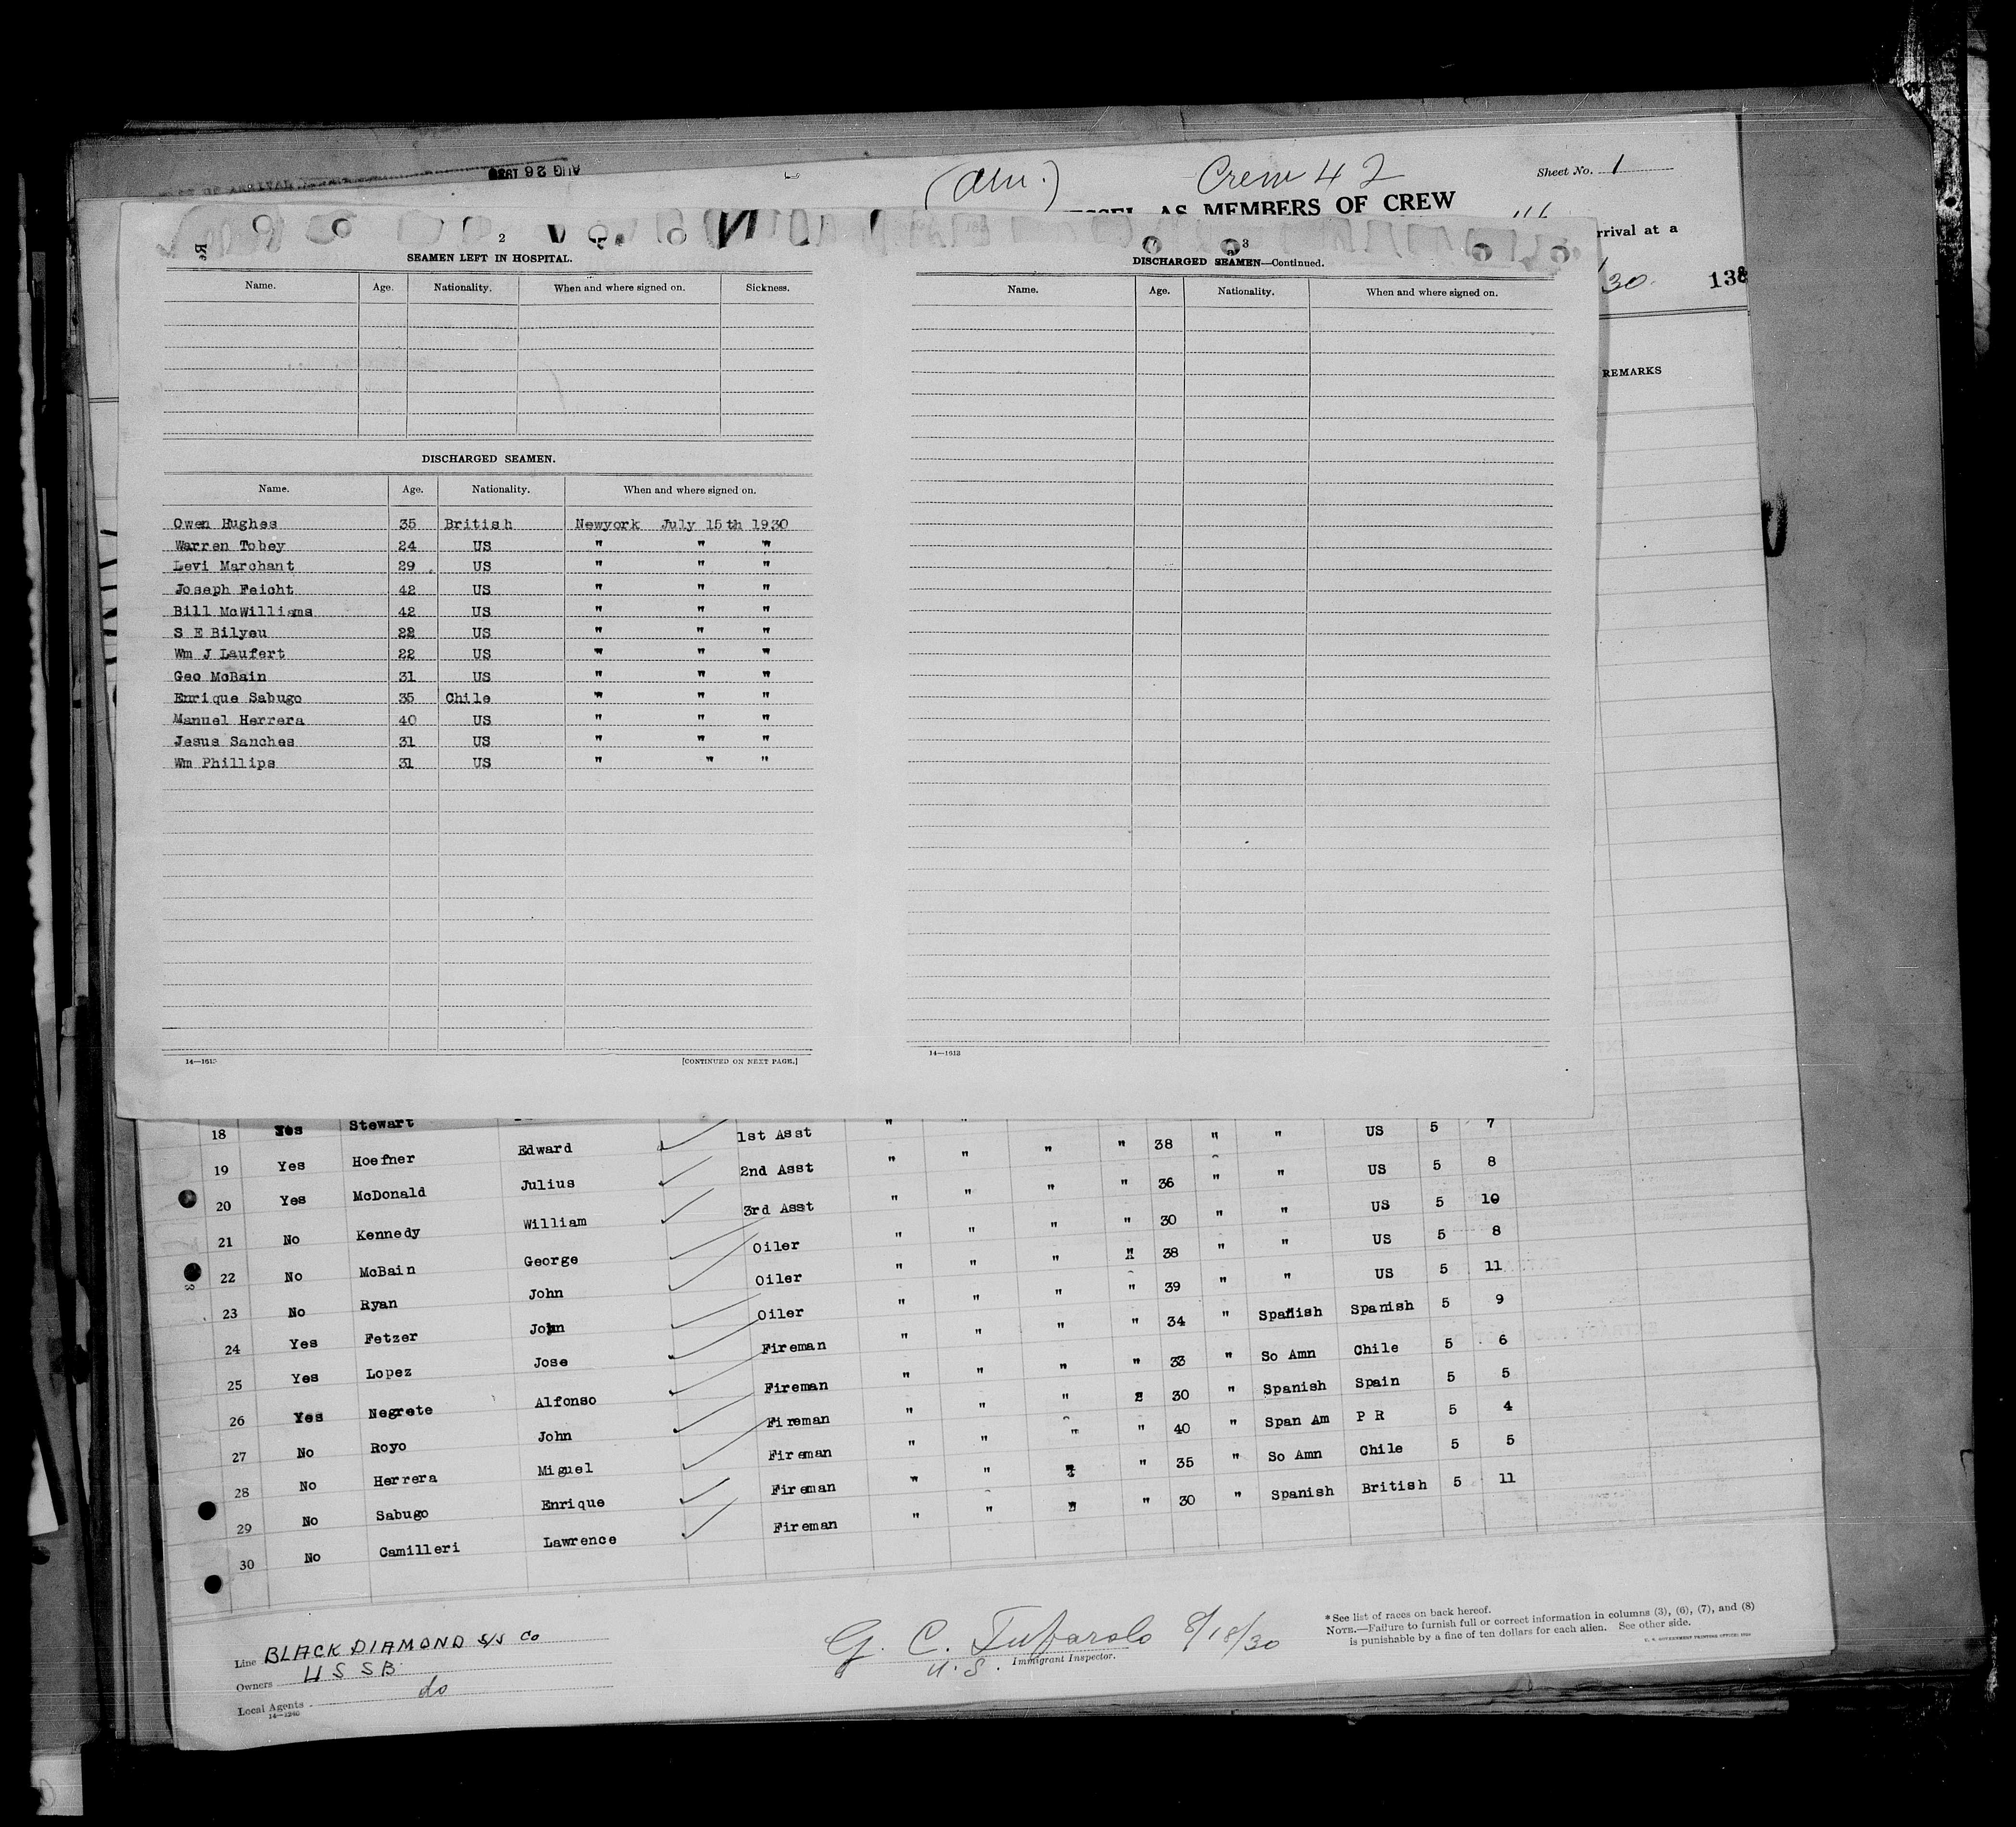 AUG 26 1930
(Am.)
Crew 42
Sheet No. 1
AS MEMBERS OF CREW
rrival at a
30.
138
REMARKS
2
SEAMEN LEFT IN HOSPITAL.
Name. Age. Nationality. When and where signed on. Sickness.
DISCHARGED SEAMEN.
Name. Age. Nationality. When and where signed on.
Owen Hughes 35 British Newyork July 15th 1930
Warren Tobey 24 US " " "
Levi Marchant 29 US " " "
Joseph Feicht 42 US " " "
Bill McWilliams 42 US " " "
S E Bilyeu 22 US " " "
Wm J Laufert 22 US " " "
Geo McBain 31 US " " "
Enrique Sabugo 35 Chile " " "
Manuel Herrera 40 US " " "
Jesus Sanches 31 US " " "
Wm Phillips 31 US " " "
14—1613
[CONTINUED ON NEXT PAGE.]
3
DISCHARGED SEAMEN—Continued.
Name. Age. Nationality. When and where signed on.
14—1613
18 Yes Stewart Edward 1st Asst " " " " 38 " " US 5 7
19 Yes Hoefner Julius 2nd Asst " " " " 36 " " US 5 8
20 Yes McDonald William 3rd Asst " " " " 30 " " US 5 10
21 No Kennedy George Oiler " " " " 38 " " US 5 8
22 No McBain John Oiler " " " " 39 " " US 5 11
23 No Ryan John Oiler " " " " 34 " Spanish Spanish 5 9
24 Yes Fetzer Jose Fireman " " " " 33 " So Amn Chile 5 6
25 Yes Lopez Alfonso Fireman " " " " 30 " Spanish Spain 5 5
26 Yes Negrete John Fireman " " " " 40 " Span Am P R 5 4
27 No Royo Miguel Fireman " " " " 35 " So Amn Chile 5 5
28 No Herrera Enrique Fireman " " " " 30 " Spanish British 5 11
29 No Sabugo Lawrence Fireman " "
30 No Camilleri
Line BLACK DIAMOND S/S Co
Owners U S S B
Local Agents do
14—1240
G. C. Tufarolo 8/18/30
U. S. Immigrant Inspector.
* See list of races on back hereof.
NOTE.—Failure to furnish full or correct information in columns (3), (6), (7), and (8)
is punishable by a fine of ten dollars for each alien. See other side.